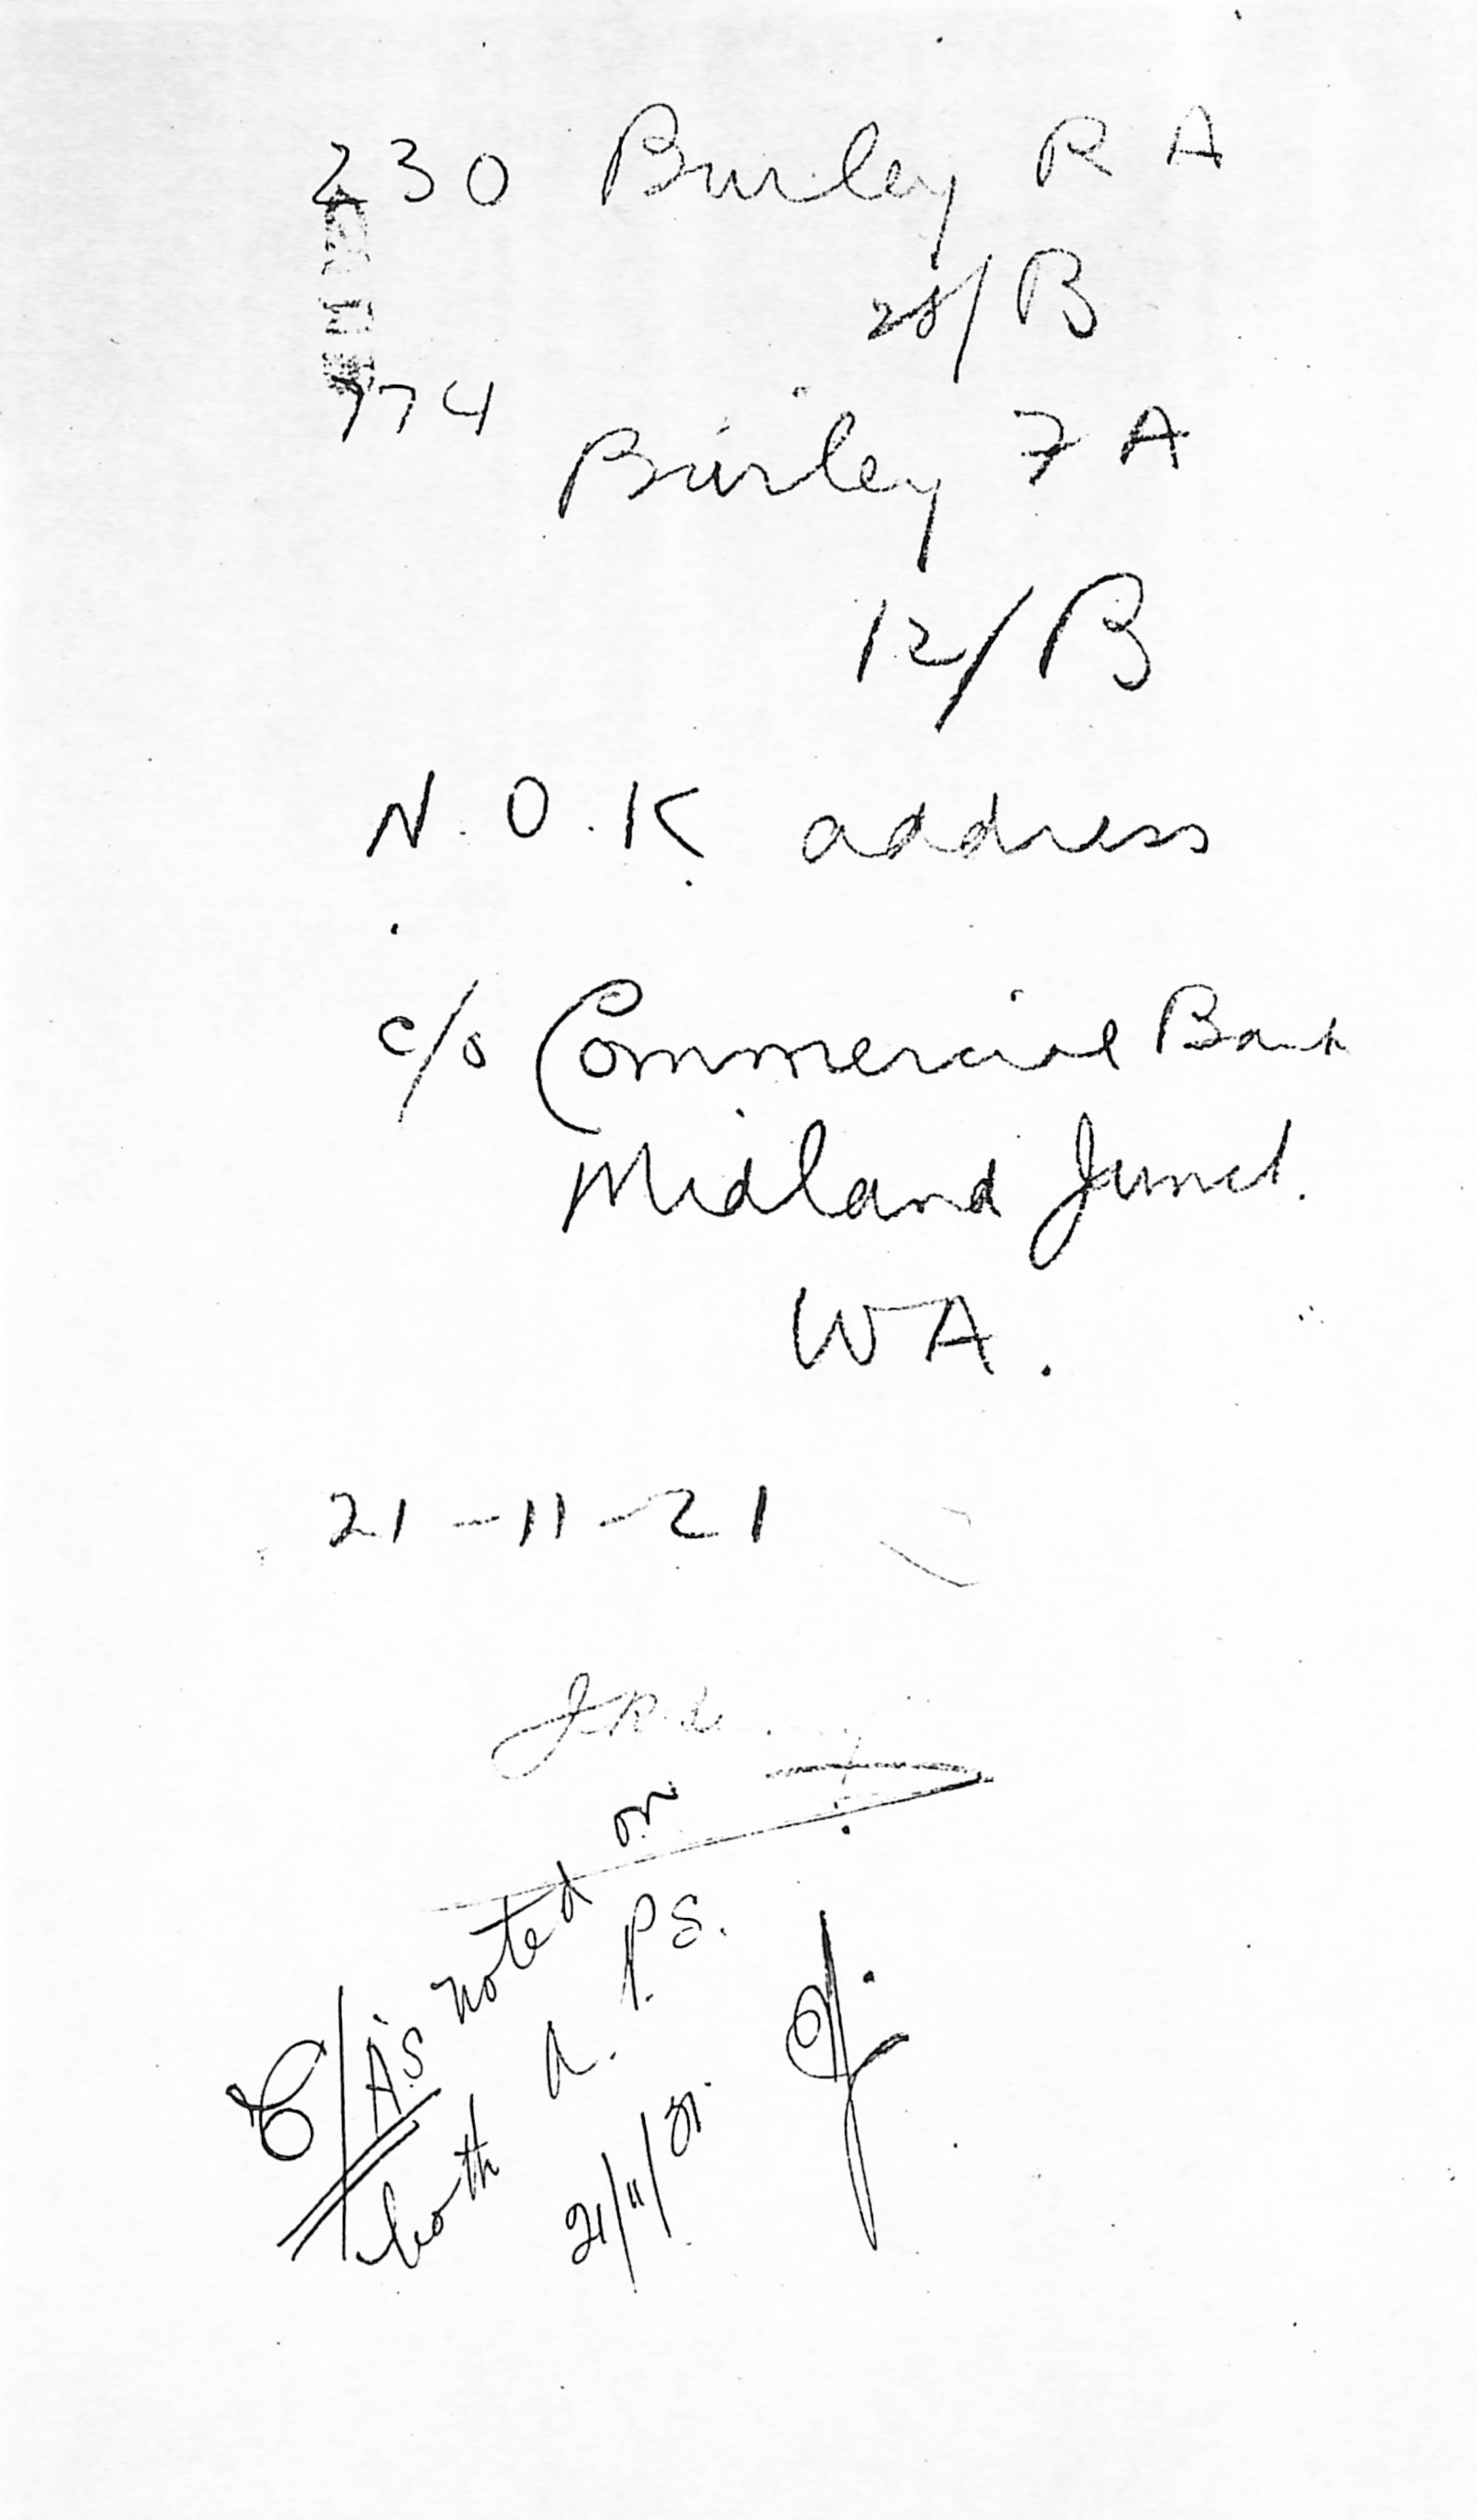 230 Burley R A
28/B
774
Burley F A
12/B
N.O.K. address
c/o Commercial Bank
Midland Junct.
WA.
21-11-21
C/A's noted on
both A. P.S.
21/11/21.